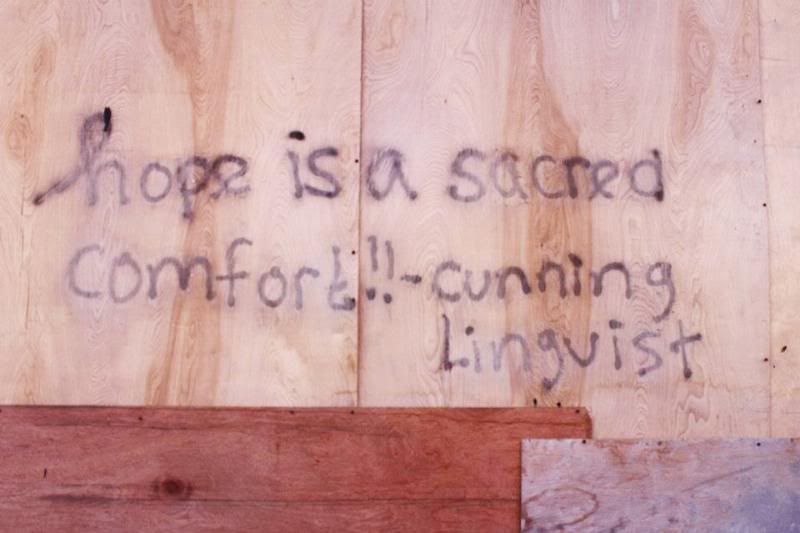 hope is a sacred
comfort!!-cunning
Linguist